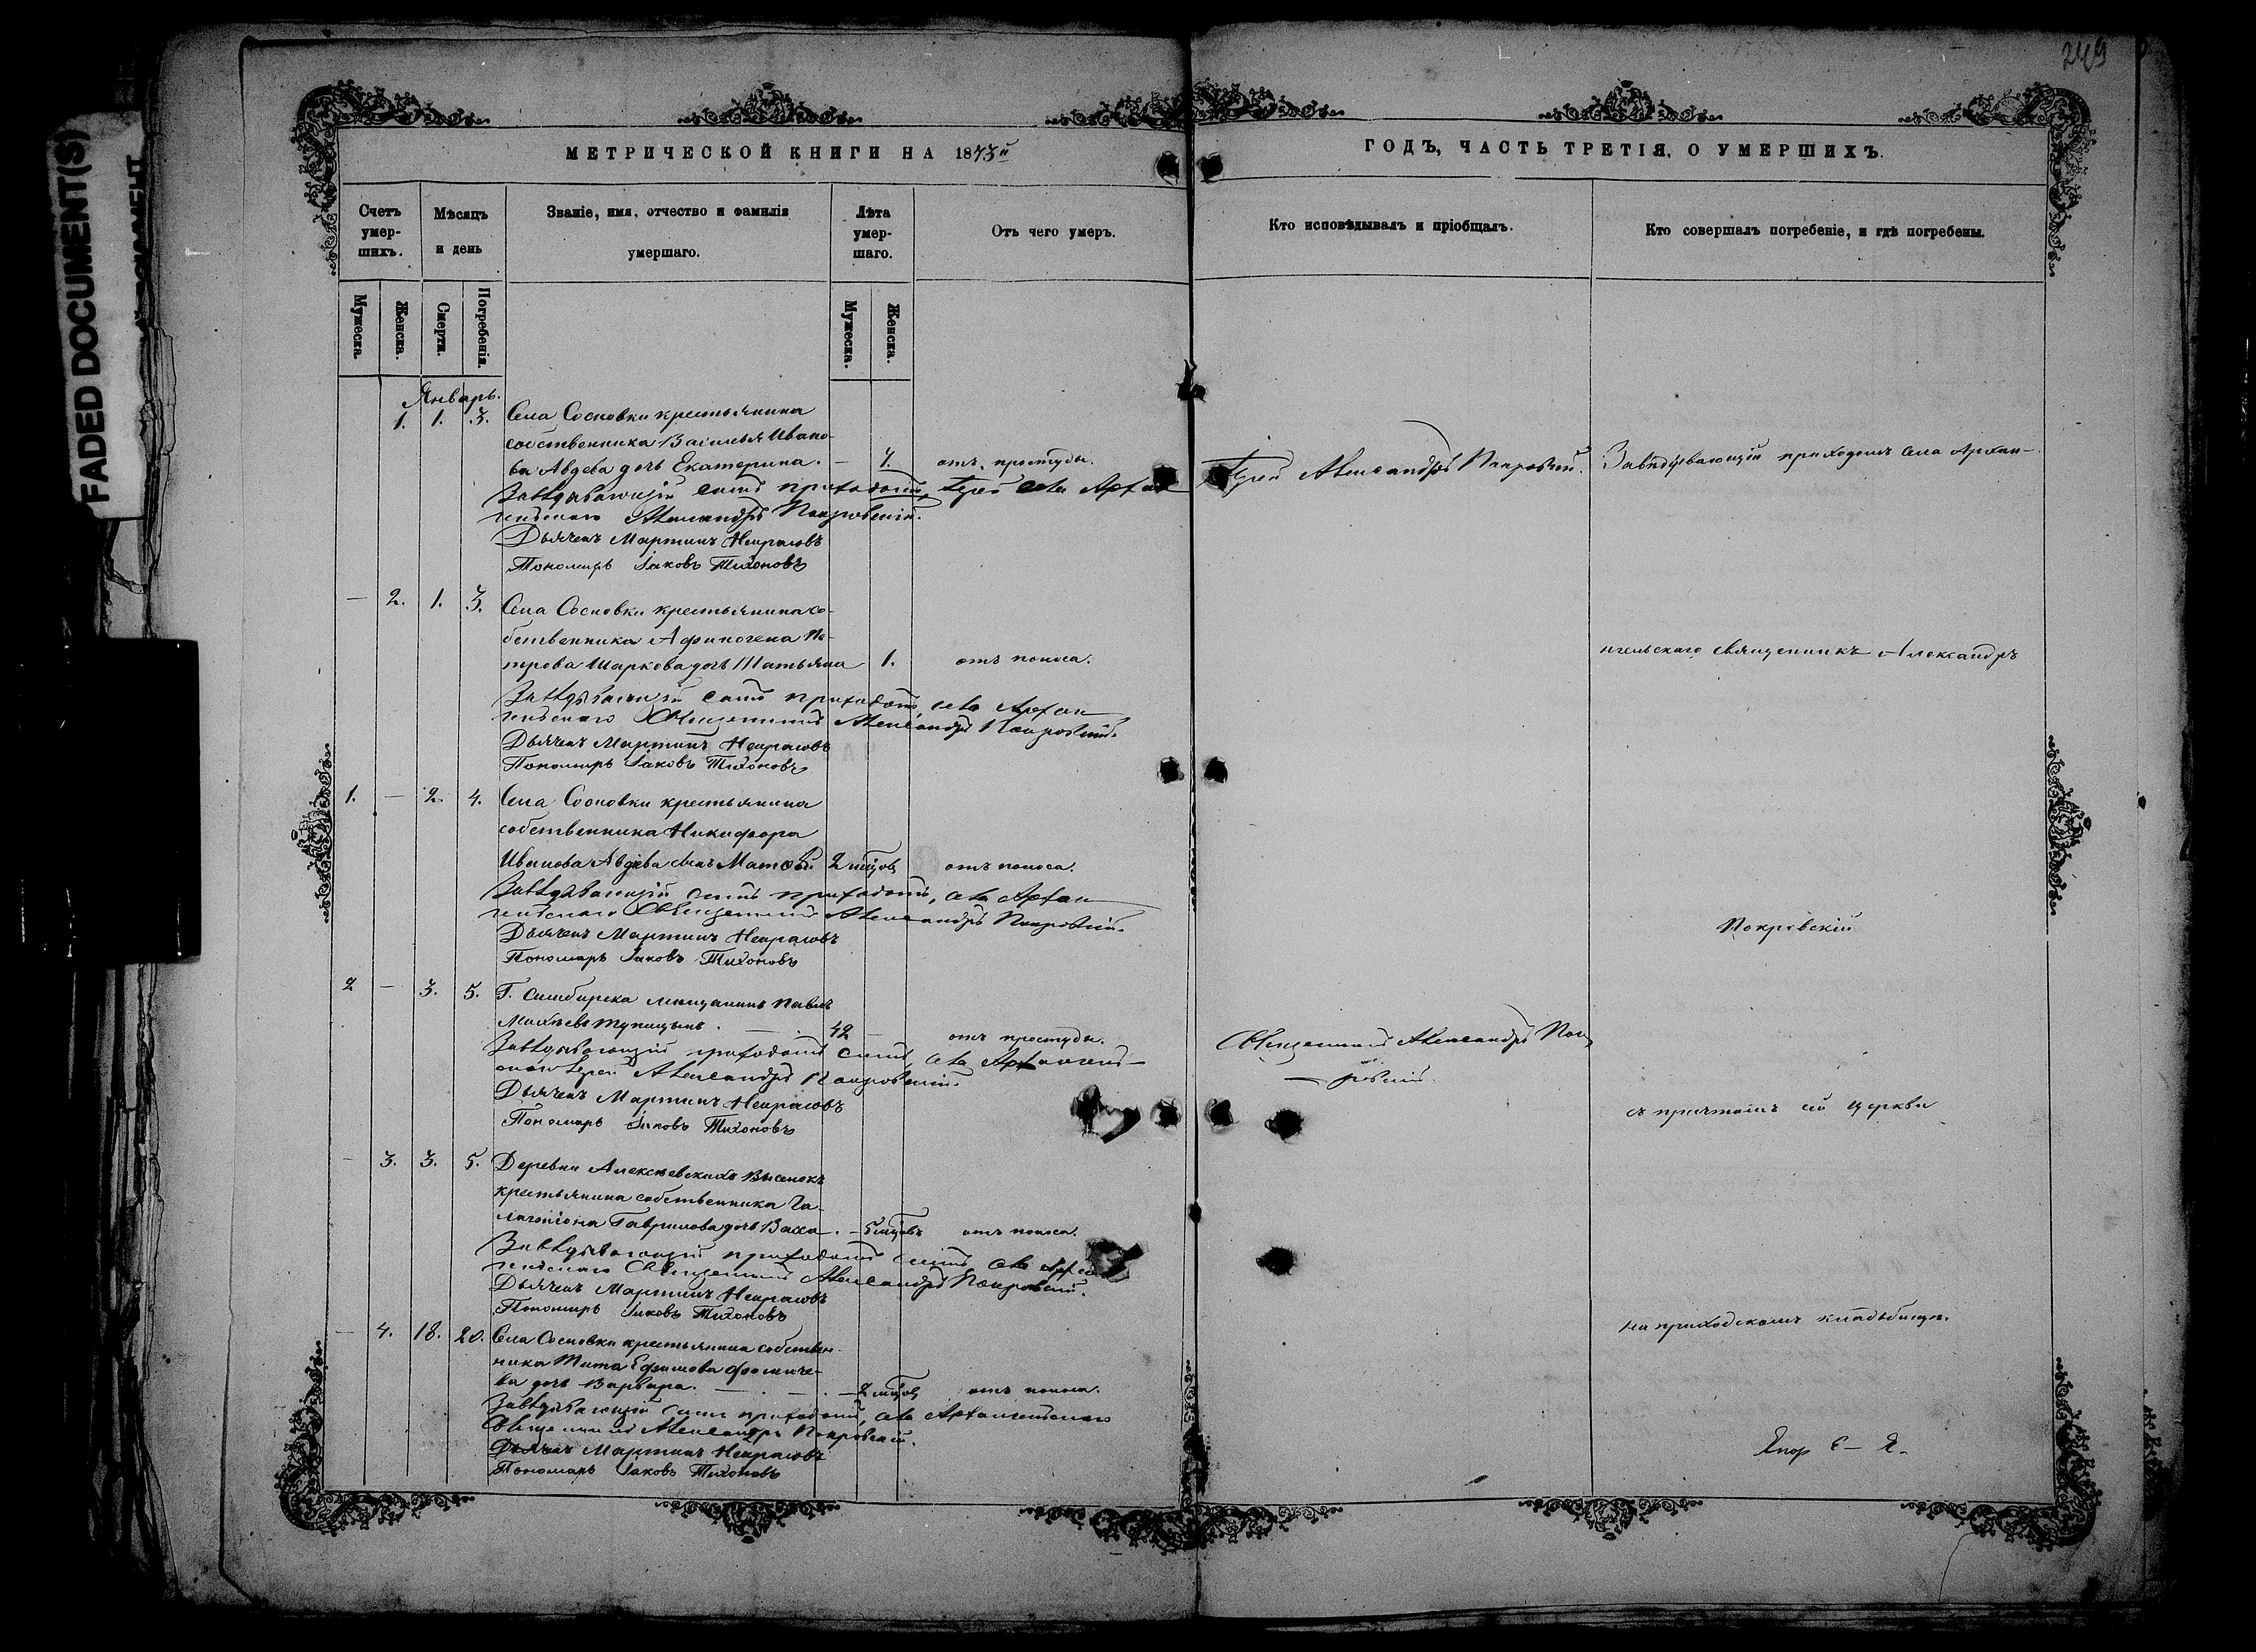 249
FADED DOCUMENT(S)
МЕТРИЧЕСКОЙ КНИГИ НА 1873й
ГОДЪ, ЧАСТЬ ТРЕТІЯ, О УМЕРШИХЪ.
Счетъ умер-шихъ.
Мѣсяцъ и день
Званіе, имя, отчество и фамилія умершаго.
Лѣта умер-шаго.
Отъ чего умеръ.
Кто исповѣдывалъ и пріобщалъ.
Кто совершалъ погребеніе, и гдѣ погребены.
Мужеска.
Женска.
Смерти.
Погребенія.
Мужеска.
Женска.
Январь.
1. 1. 3. Села Сосновки крестьянина
собственника Василья Ивано-
ва Авдева дочь Екатерина. — отъ простуды.
Іерей Александръ Покровскій.
Завѣдывающій приходомъ села Архан-
Завѣдывающій симъ приходомъ, Іерей села Архан
гельскаго Александръ Покровскій.
Дьячекъ Мартинъ Некрасовъ
Пономарь Іаковъ Тихоновъ
— 2. 1. 3. Села Сосновки крестьянина со-
бственника Афиногена Пе-
трова Шаркова дочь Татьяна 1. отъ поноса.
нгельскаго священникъ Александръ
Завѣдывающій симъ приходомъ, села Архан
гельскаго Священникъ Александръ Покровскій.
Дьячекъ Мартинъ Некрасовъ
Пономарь Іаковъ Тихоновъ
1. — 2. 4. Села Сосновки крестьянина
собственника Никифора
Иванова Авдева сынъ Матовѣй 2 мѣсяцовъ отъ поноса.
Завѣдывающій симъ приходомъ, села Архан
гельскаго Священникъ Александръ Покровскій.
Покровскій
Дьячекъ Мартинъ Некрасовъ
Пономарь Іаковъ Тихоновъ
2 — 3. 5. Г. Симбирска мѣщанинъ Павелъ
42 — отъ простуды.
Священникъ Александръ Пок
ровскій.
Завѣдывающій приходомъ симъ, села Архангель-
скаго Іерей Александръ Покровскій.
Дьячекъ Мартинъ Некрасовъ
съ причтомъ сей церкви
Пономарь Іаковъ Тихоновъ
— 3. 3. 5. Деревни Алексѣевскихъ Выселокъ
крестьянина собственника
Гаврилова дочь — 5 мѣсяцовъ отъ поноса.
Завѣдывающій приходомъ симъ села Архан
гельскаго Священникъ Александръ Покровскій.
Дьячекъ Мартинъ Некрасовъ
Пономарь Іаковъ Тихоновъ
на приходскомъ кладьбищѣ.
— 4. 18. 20. Села Сосновки крестьянина собствен-
ника Тита Ефимова Фомиче-
ва дочь Варвара. — 2 мѣсяцовъ отъ поноса.
Завѣдывающій симъ приходомъ, села Архангельскаго
Священникъ Александръ Покровскій.
Дьячекъ Мартинъ Некрасовъ
Пономарь Іаковъ Тихоновъ